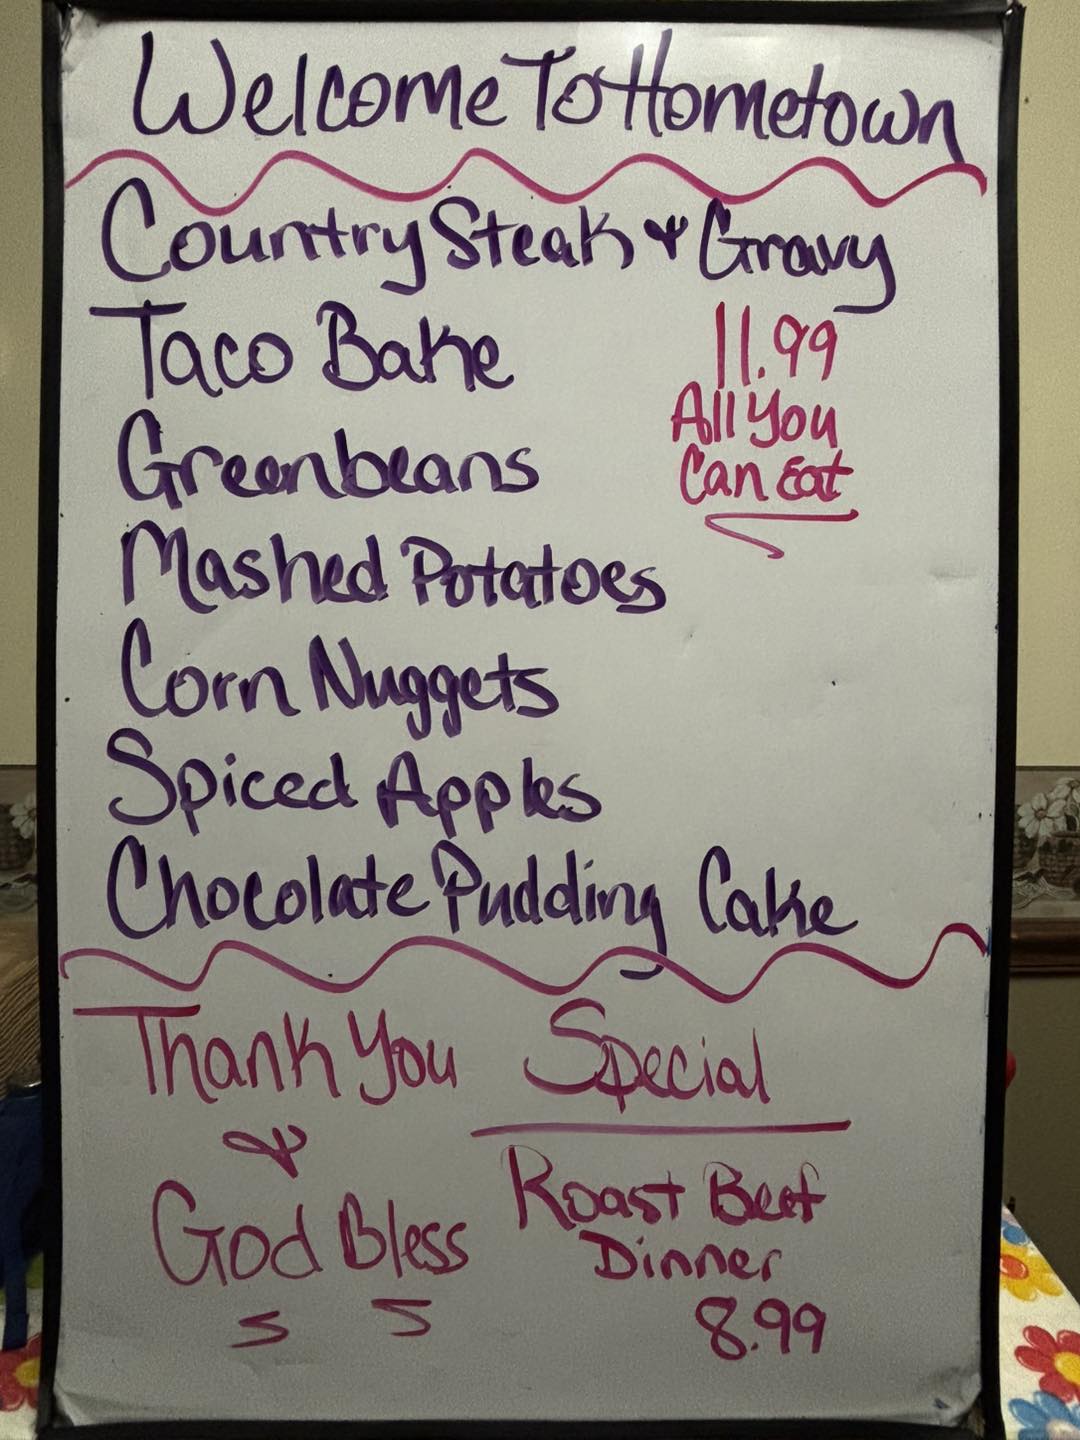 Welcome To Hometown
Country Steak & Gravy
Taco Bake
11.99
All You
Can Eat
Greenbeans
Mashed Potatoes
Corn Nuggets
Spiced Apples
Chocolate Pudding Cake
Thank You
&
God Bless
Special
Roast Beef
Dinner
8.99